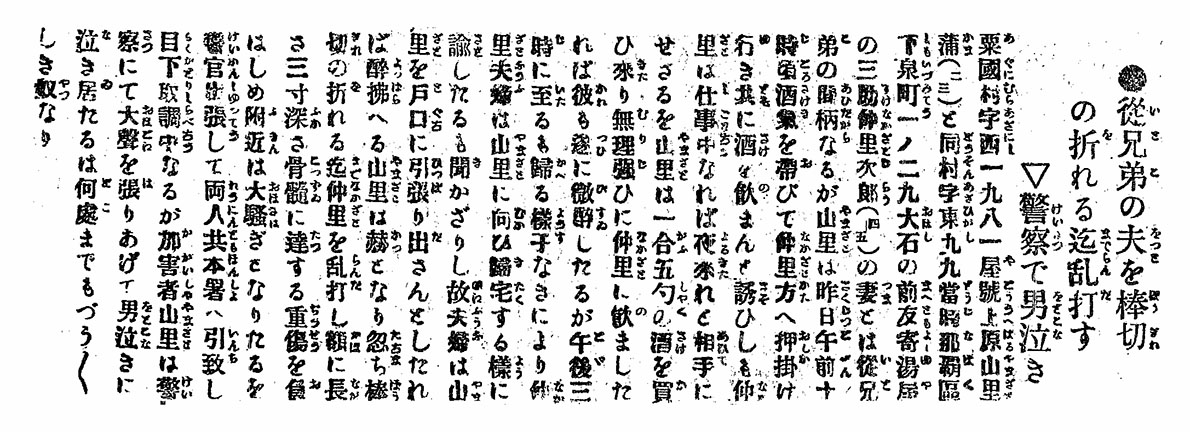 ●從兄弟の夫を棒切
の折れる迄乱打す
▽警察で男泣き
粟國村字西一九八一屋號上原山里
蒲(二三)と同村字東九九當時那覇區
下泉町一ノ二九大石の前友寄湯屋
の三助仲里次郎(四五)の妻とは從兄
弟の間柄なるが山里は昨日午前十
時頃酒氣を帶びて仲里方へ押掛け
行き共に酒を飲まんと誘ひしも仲
里は仕事中なれば夜來れと相手に
せざるを山里は一合五勺の酒を買
ひ來り無理強ひに仲里に飲ました
れば彼も遂に微醉したるが午後三
時に至るも歸る樣子なきにより仲
里夫婦は山里に向ひ歸宅する樣に
諭したるも聞かざりし故夫婦は山
里を戸口に引張り出さんとしたれ
ば醉拂へる山里は赫となり忽ち棒
切の折れる迄仲里を乱打し額に長
さ三寸深さ骨髓に達する重傷を負
はしめ附近は大騷ぎとなりたるを
警官出張して両人共本署へ引致し
目下取調中なるが加害者山里は警
察にて大聲を張りあげて男泣きに
泣き居たるは何處までもづう〱
しき奴なり